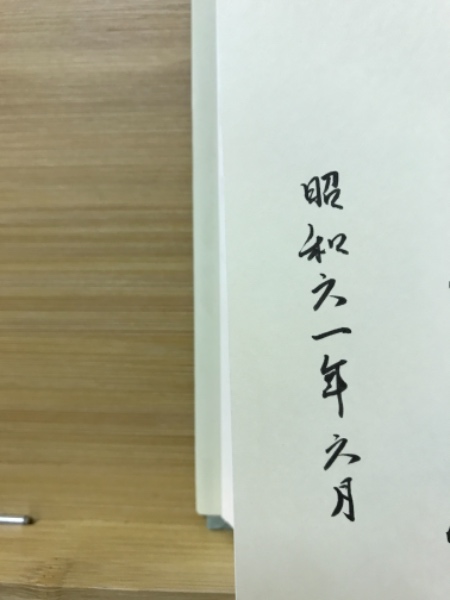 昭和六一年六月